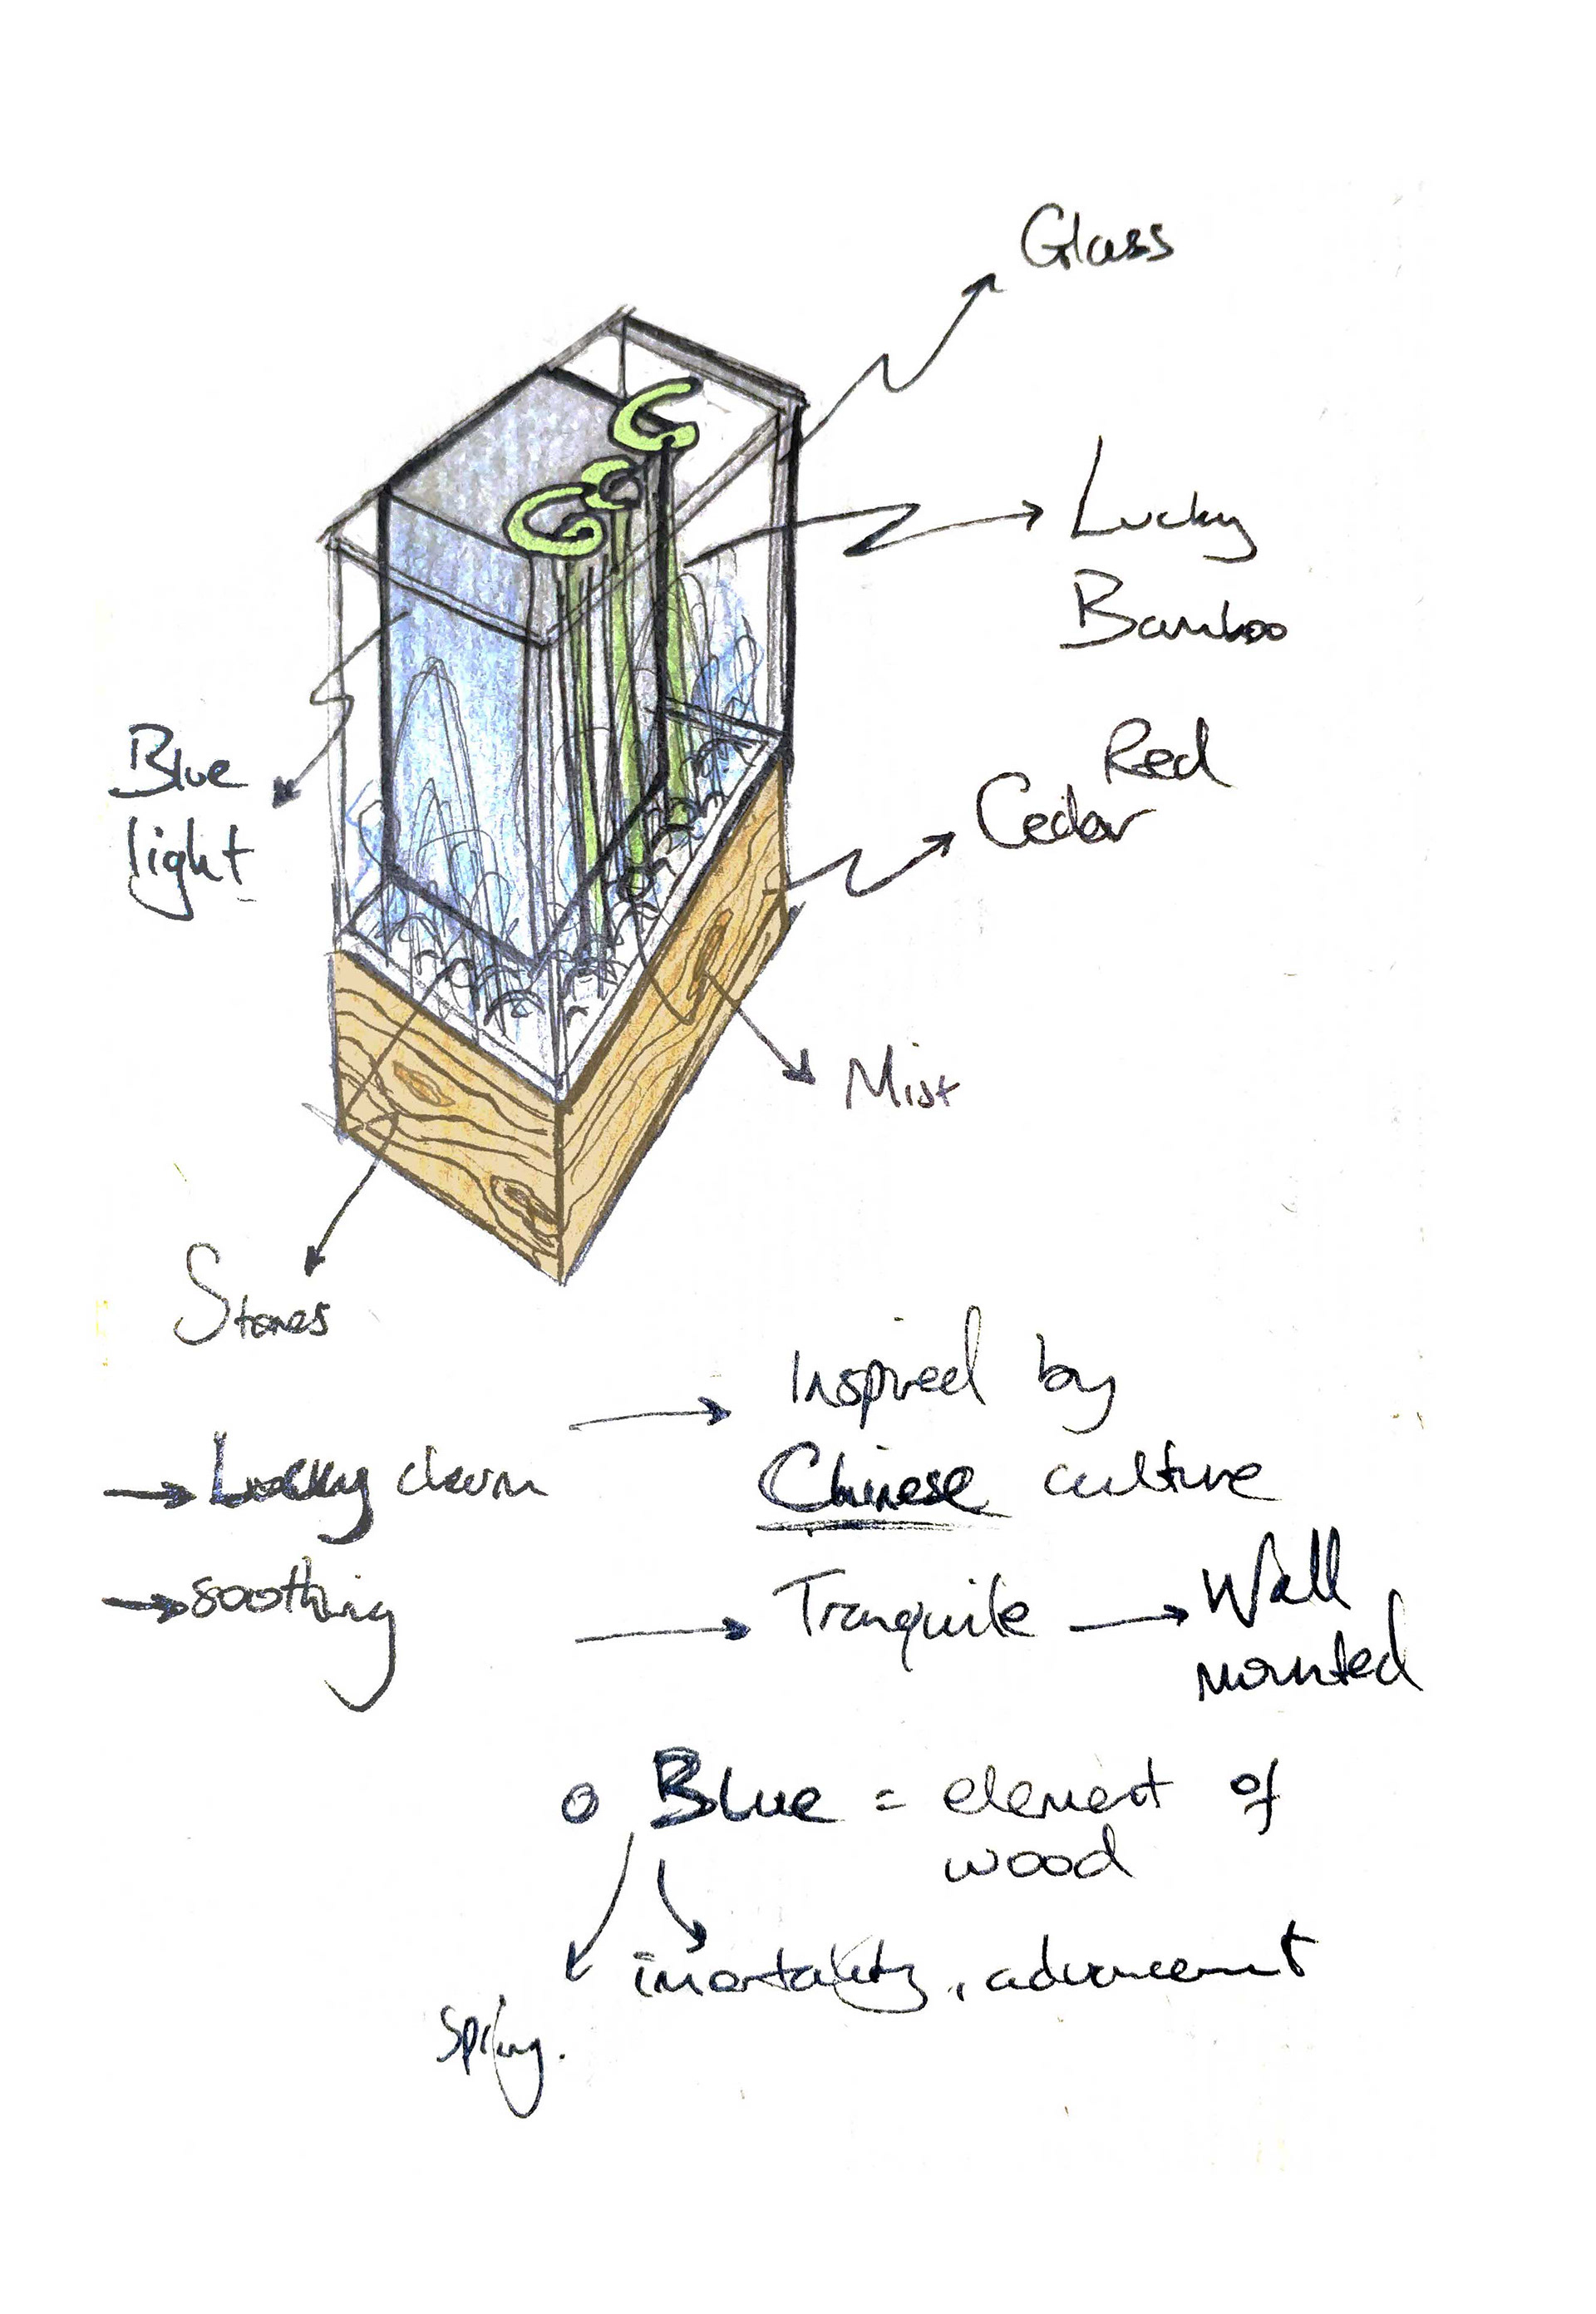 Glass
Lucky
Bamboo
Red
Cedar
Blue
light
Mist
Stones
Inspired by
→ Lucky charm → Chinese culture
→ soothing → Tranquile → Wall
mounted
o Blue = element of
wood
imortality, advancement
Spring.